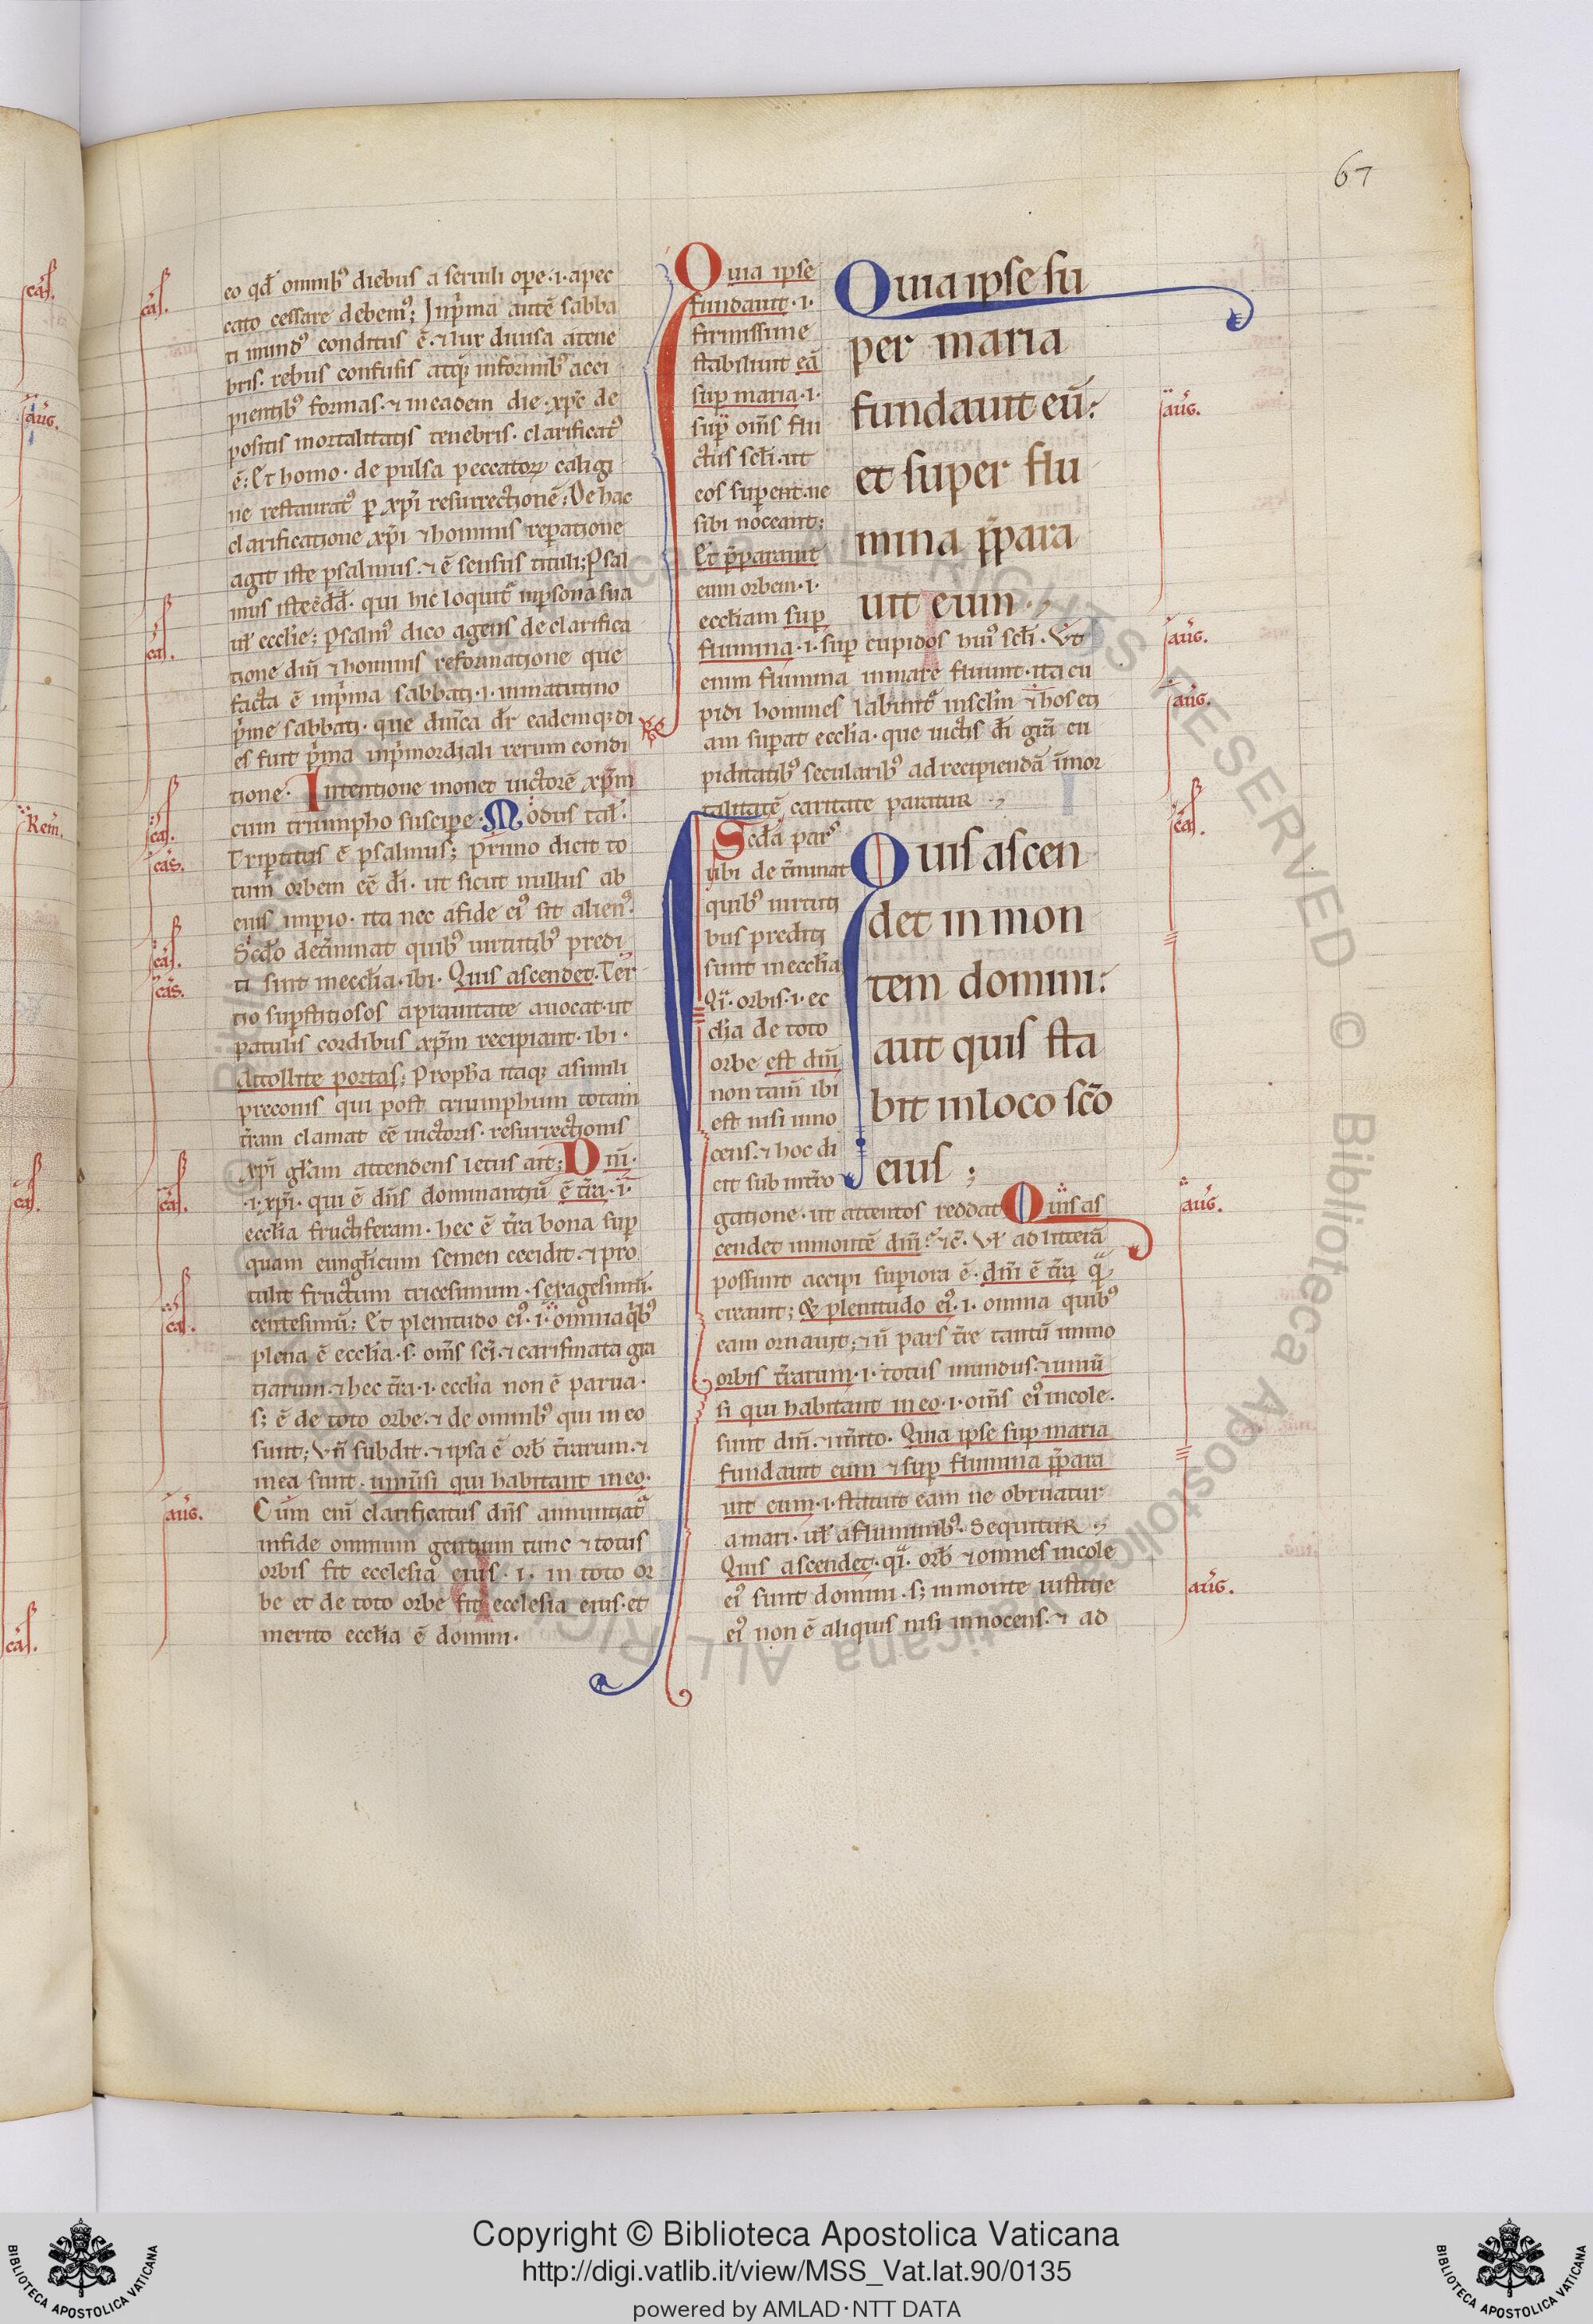 67
eo qđ omnibꝰ diebus a seruili oꝑe ·i· a pec
cato cessare debemꝰ; In pͥma autē sabba
ti mundꝰ conditus ē · ⁊ lux diuisa a tene
bris · rebus confusis atqꝫ informibꝰ acci
pientibꝰ formas · ⁊ in eadem die xp̄c de
positis mortalitatis tenebris · clarificatꝰ
ē; Et homo · depulsa peccatoꝝ caligi
ne restauratꝰ ꝑ xp̄i resurrectionē; De hac
clarificatione xp̄i ⁊ hominis reꝑatione
agit iste psalmus · ⁊ ē sensus tituli; Psal
mus iste ē dđ · qui hic loquitͬ in ꝑsona sua
uł ecclie; Psalmꝰ dico agens de clarifica
tione dn̄i ⁊ hominis reformatione que
facta ē in pͥma sabbati ·i· in matutino
pͥme sabbati · que dn̄ica dr̄ eademqꝫ di
es fuit pͥma in pͥmordiali rerum condi
tione · Intentione monet uictorē xp̄m
cum triumpho suscipe · Modus tał ·
Tripartitus ē psalmus; Primo dicit to
tum orbem eē di · ut sicut nullus ab
eius imꝑio · ita nec a fide eiꝰ sit alienꝰ ·
Scđo det̄minat quibꝰ uirtutibꝰ predi
ti sunt in ecclia · ibi · Quis ascendet · Ter
tio suꝑstitiosos a prauitate auocat · ut
patulis cordibus xp̄m recipiant · ibi ·
Attollite portas; Propha itaqꝫ a simili
preconis qui post triumphum totam
t̄ram clamat eē uictoris · resurrectionis
xp̄i głam attendens letus ait; Dn̄i ·
·i· xp̄i · qui ē dn̄s dominantiū ē t̄ra ·i·
ecclia fructiferam · hec ē t̄ra bona suꝑ
quam eunglicum semen cecidit · ⁊ pro
tulit fructum tricesimum · sexagesimū ·
centesimū; Et plenitudo eiꝰ ·i· omnia qͥbꝰ
plena ē ecclia · s · om̄s sci · ⁊ carismata gra
tiarum · ⁊ hec t̄ra ·i· ecclia non ē parua ·
s; ē de toto orbe · ⁊ de omnibꝰ qui in eo
sunt; Vn̄ subdit · ⁊ ipsa ē orb t̄rarum · ⁊
in ea sunt · uniūsi qui habitant in eo ·
Cum eni clarificatus dn̄s annuntiatͬ
in fide omnium gentium tunc ⁊ totus
orbis fit ecclesia eius ·i· in toto or
be et de toto orbe fit ecclesia eius · et
merito ecclia ē domini ·
Quia ipse
fundauit ·i·
firmissime
stabiliuit eā
suꝑ maria ·i·
suꝑ om̄s flu
ctus scłi · ut
eos suꝑent · ne
sibi noceant;
Et p̄parauit
eum orbem ·i·
eccliam suꝑ
flumina ·i· suꝑ cupidos huiꝰ scłi · Vt
enim flumina in mare fluunt · ita cu
pidi homines labuntͬ in scłm ⁊ hos eti
am suꝑat ecclia · que uictis di gra cu
piditatibꝰ secularibꝰ ad recipiendā im̄or
talitatē caritate paratur
Quia ipse su
per maria
fundauit eū:
et super flu
mina p̄para
uit eum
Scđa pars
ubi det̄minat
quibꝰ uirtuti
bus prediti
sunt in ecclia
Qͣ · orbis ·i· ec
clia de toto
orbe est dn̄i
non tam̄ ibi
est nisi inno
cens · ⁊ hoc di
cit sub int̄ro
gatione · ut attentos reddat Quis as
cendet in montē dn̄i ⁊c̄ · Vł ad litterā
possunt accipi suꝑiora ē · dn̄i ē t̄ra qͣ
creauit; & plenitudo eiꝰ ·i· omnia quibꝰ
eam ornauit; ⁊ n̄ pars t̄re tantū immo
orbis t̄rarum ·i· totus mundus · ⁊ uniū
si qui habitant in eo ·i· om̄s eiꝰ incole ·
sunt dn̄i · ⁊ m̄ito · Quia ipse suꝑ maria
fundauit eum ⁊ suꝑ flumina p̄para
uit eum ·i· statuit eam ne obruatur
a mari · uł a fluminibꝰ · Sequitur
Quis ascendet · qͣ · orb ⁊ omnes incole
eiꝰ sunt domini · s; in monte iustitie
eiꝰ non ē aliquis nisi innocens · ⁊ ad
Quis ascen
det in mon
tem domini:
aut quis sta
bit in loco sc̄o
eius;
cas.
aug.
Rem.
Copyright © Biblioteca Apostolica Vaticana
http://digi.vatlib.it/view/MSS_Vat.lat.90/0135
powered by AMLAD·NTT DATA
BIBLIOTECA APOSTOLICA VATICANA
BIBLIOTECA APOSTOLICA VATICANA